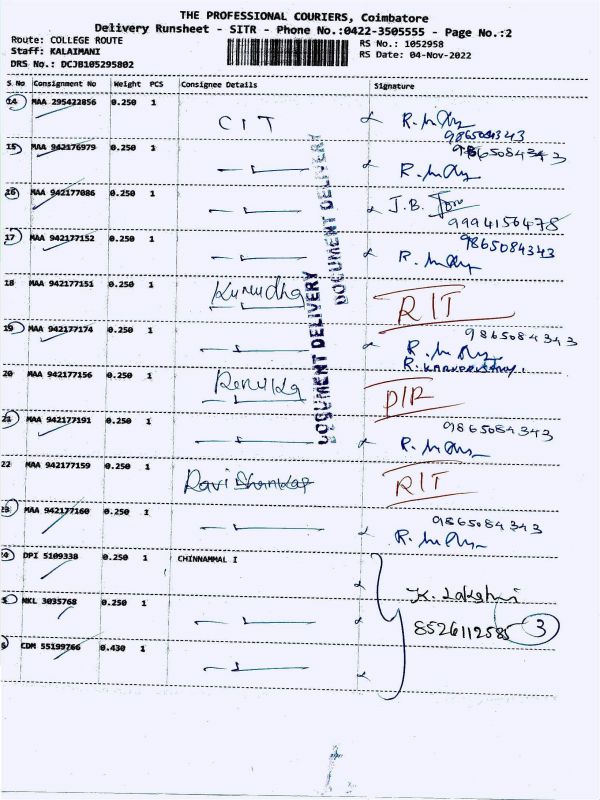 THE PROFESSIONAL COURIERS, Coimbatore
Delivery Runsheet - SITR - Phone No.:0422-3505555 - Page No.:2
Route: COLLEGE ROUTE
Staff: KALAIMANI
DRS No.: DCJB105295802
RS No.: 1052958
RS Date: 04-Nov-2022
S No Consignment No Weight PCS Consignee Details Signature
14 MAA 295422856 0.250 1 CIT
9865084343
15 MAA 942176979 0.250 1 9865084343
16 MAA 942177086 0.250 1 J.B.
9994156478
17 MAA 942177152 0.250 1 9865084343
18 MAA 942177151 0.250 1 RIT
19 MAA 942177174 0.250 1 9865084343
20 MAA 942177156 0.250 1 Renuka
21 MAA 942177191 0.250 1 9865084343
22 MAA 942177159 0.250 1 Ravi Shankar RIT
23 MAA 942177160 0.250 1 9865084343
DPI 5109338 0.250 1 CHINNAMMAL I
K. Lakshmi
NKL 3035768 0.250 1 8526112585 3
CDM 55199766 0.430 1
DOCUMENT DELIVERY
DOCUMENT DELIVERY